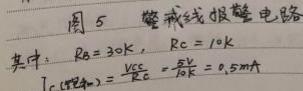 图5 警戒线报警电路
其中: RB=30K, RC=10K
Ic(饱和)=VCC/RC=5V/10K=0.5mA